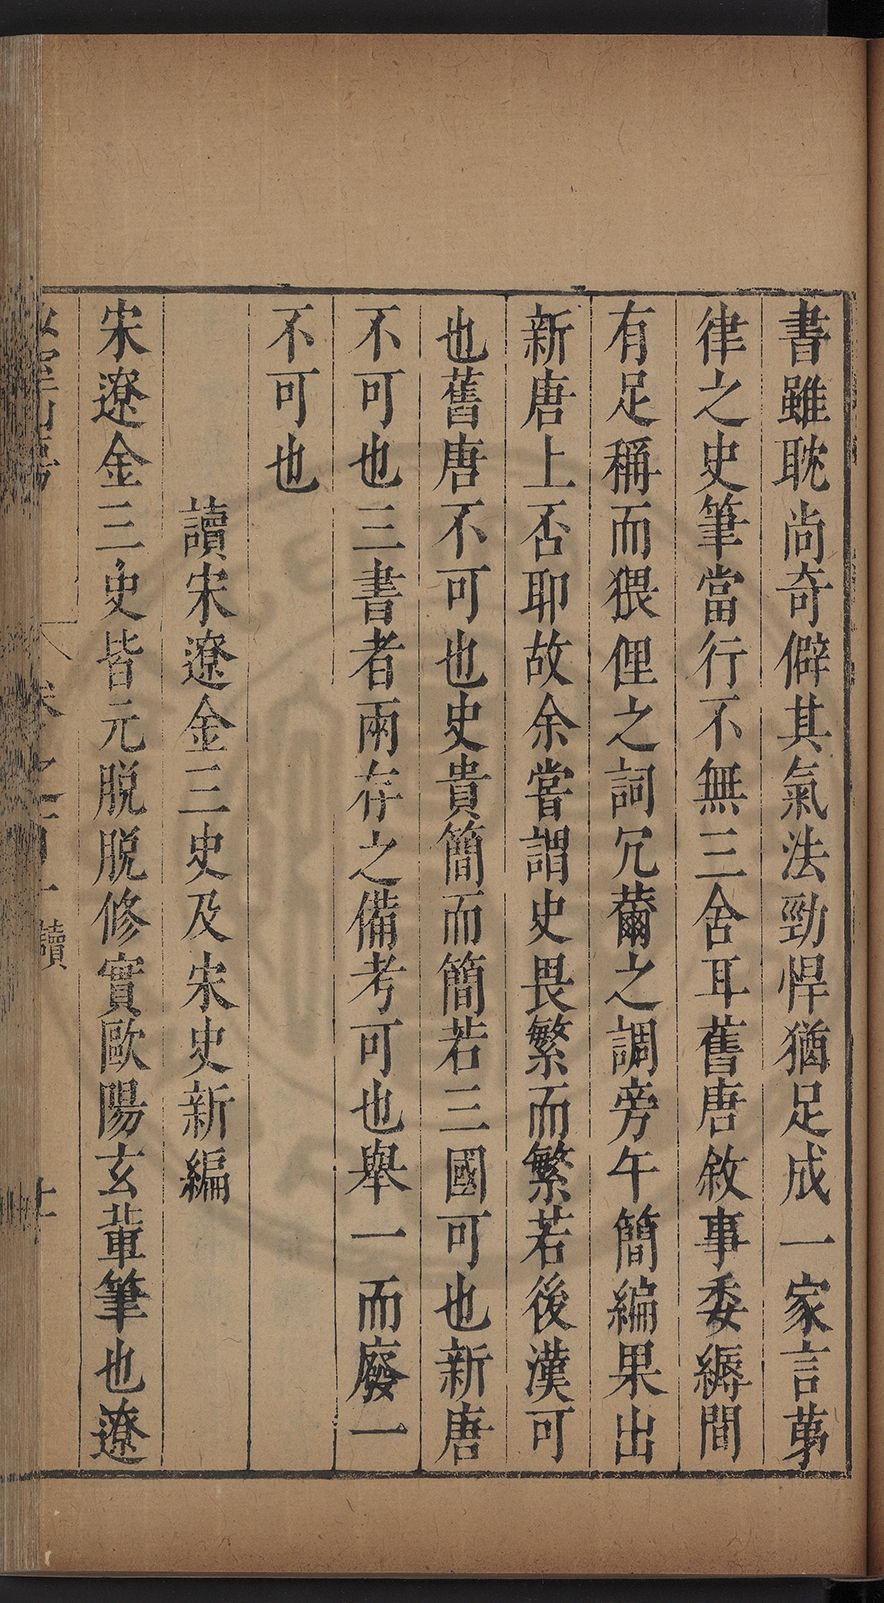 書雖耽尚奇僻其氣法勁悍猶足成一家言苐
律之史筆當行不無三舍耳舊唐敘事委縟間
有足稱而猥俚之詞冗薾之調旁午簡編果出
新唐上否耶故余嘗謂史畏繁而繁若後漢可
也舊唐不可也史貴簡而簡若三國可也新唐
不可也三書者兩存之備考可也舉一而廢一
不可也
讀宋遼金三史及宋史新編
宋遼金三史皆元脫脫修實歐陽玄輩筆也遼